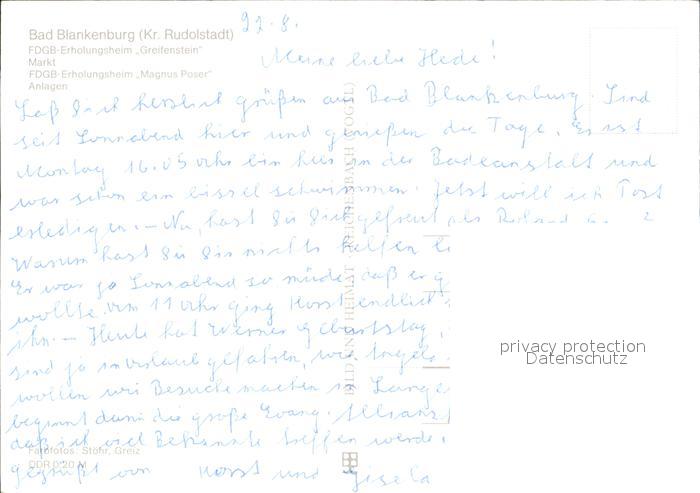 22.8.
Bad Blankenburg (Kr. Rudolstadt)
FDGB-Erholungsheim „Greifenstein"
Markt
FDGB-Erholungsheim „Magnus Poser"
Anlagen
Meine liebe Hede!
Laß Dich herzlich grüßen aus Bad Blankenburg. Sind
seit Sonnabend hier und genießen die Tage. Es ist
Montag 16.05 Uhr bin hier in der Badeanstalt und
war schon ein bissel schwimmen. Jetzt will ich Post
erledigen. – Na, hast Du Dich gefreut als Roland
Warum hast Du Dir nichts helfen
Er war ja Sonnabend so müde, daß er
wollte. Um 11 Uhr ging Horst endlich
ihn. – Heute hat Werner Geburtstag,
sind ja in Urlaub gefahren, wie
wollen wir Besuche machen in
beginnt dann die große Evang. Allianz
daß ich viel Bekannte treffen werde.
gegrüßt von Horst und Gisela
BILD UND HEIMAT REICHENBACH (VOGTL)
privacy protection
Datenschutz
Farbfotos: Stöhr, Greiz
DDR 0,20 M